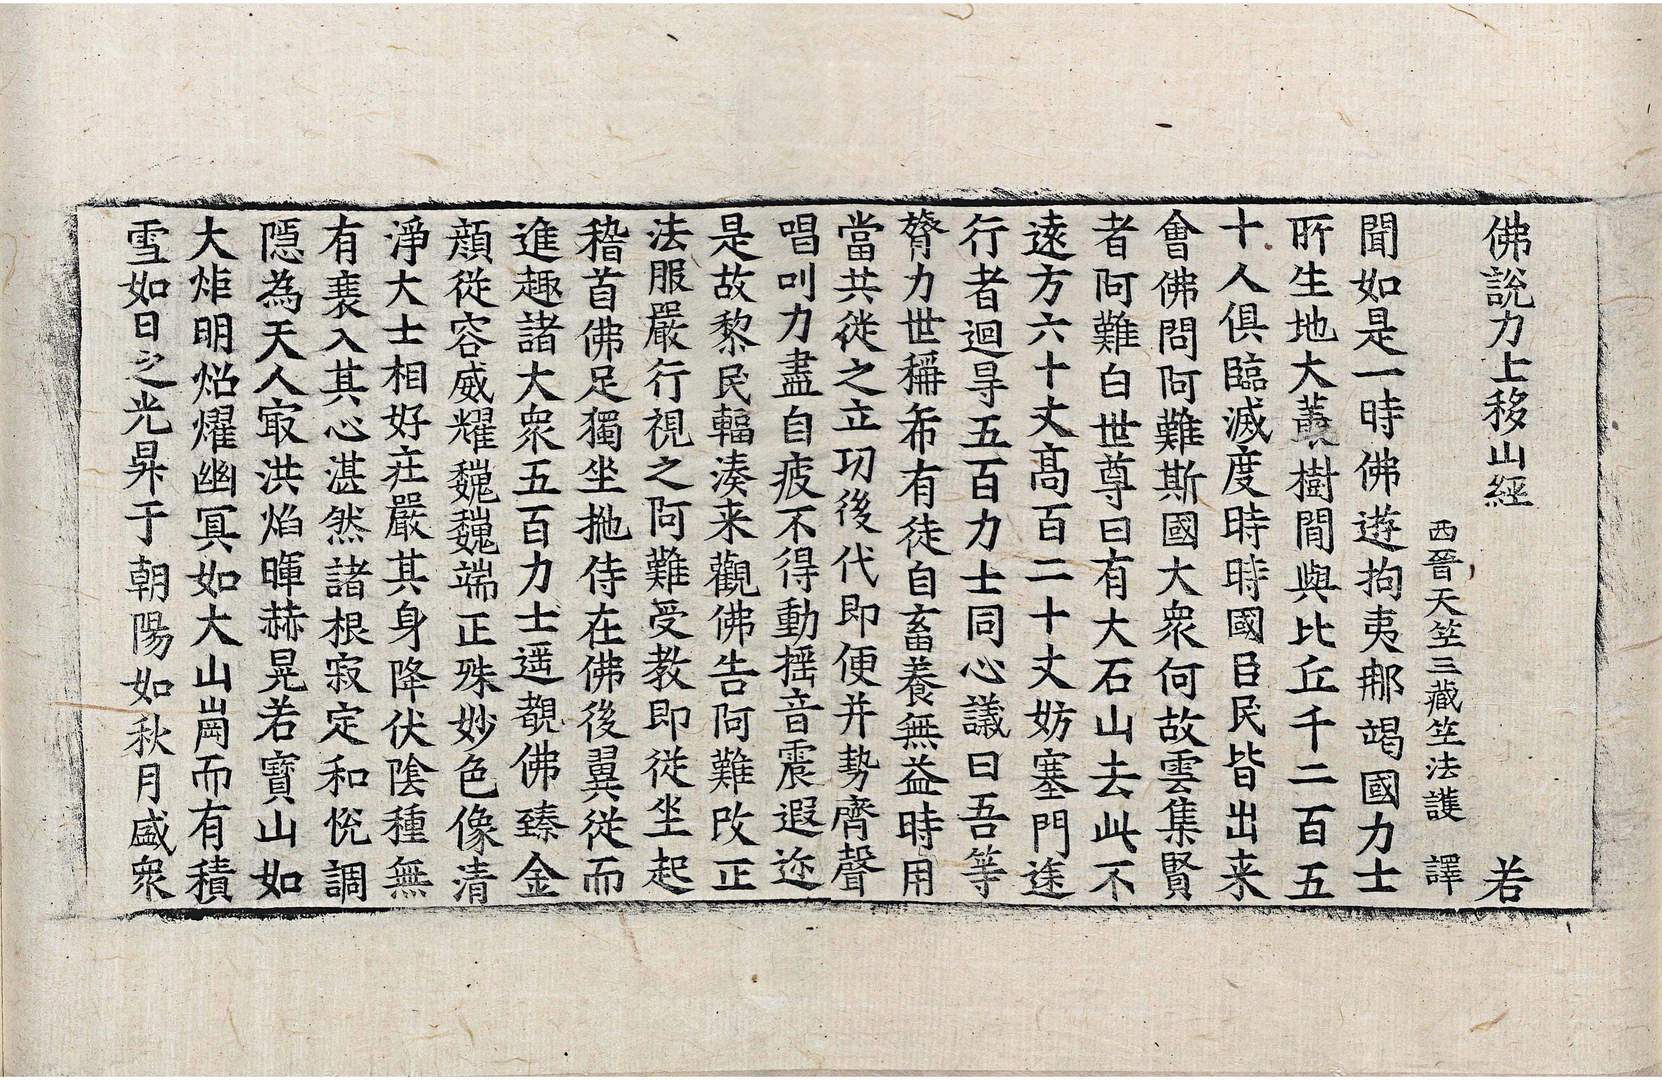 佛說力士移山經 若
西晉天竺三藏竺法護 譯
聞如是一時佛遊拘夷那竭國力士
所生地大藂樹間與比丘千二百五
十人俱臨滅度時時國臣民皆出来
會佛問阿難斯國大衆何故雲集賢
者阿難白世尊曰有大石山去此不
遠方六十丈髙百二十丈妨塞門途
行者迴㝵五百力士同心議曰吾等
膂力世稱希有徒自畜養無益時用
當共徙之立功後代即便并勢齊聲
唱叫力盡自疲不得動揺音震遐迩
是故黎民輻湊来觀佛告阿難改正
法服嚴行視之阿難受教即從坐起
稽首佛足獨坐拖侍在佛後翼從而
進趣諸大衆五百力士遥覩佛臻金
顔從容威耀巍巍端正殊妙色像清
淨大士相好莊嚴其身降伏陰種無
有衰入其心湛然諸根寂定和恱調
隱為天人冣洪焰暉赫晃若寳山如
大炬明焰燿幽冥如大山崗而有積
雪如日之光昇于朝陽如秋月盛衆